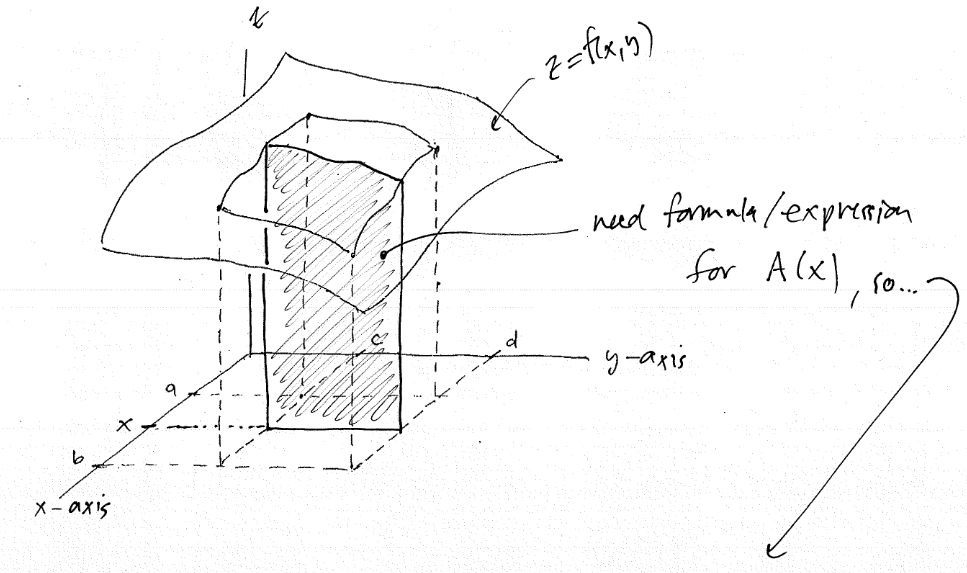 z
z=f(x,y)
need formula/expression
for A(x), so...
c
d
y-axis
a
x
b
x-axis